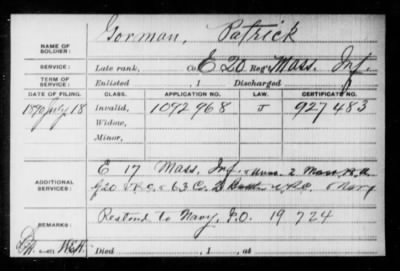 Gorman, Patrick
NAME OF SOLDIER:
SERVICE: Late rank, Co. E 20 Reg't Mass. Inf.
TERM OF SERVICE: Enlisted , 1 Discharged
DATE OF FILING. CLASS. APPLICATION NO. LAW. CERTIFICATE NO.
1890 July 18 Invalid, 1092968 J 927483
Widow,
Minor,
E 17 Mass. Inf.
ADDITIONAL SERVICES: 63 Co. 2 Navy
REMARKS: to Navy, 19724
Died , 1 , at